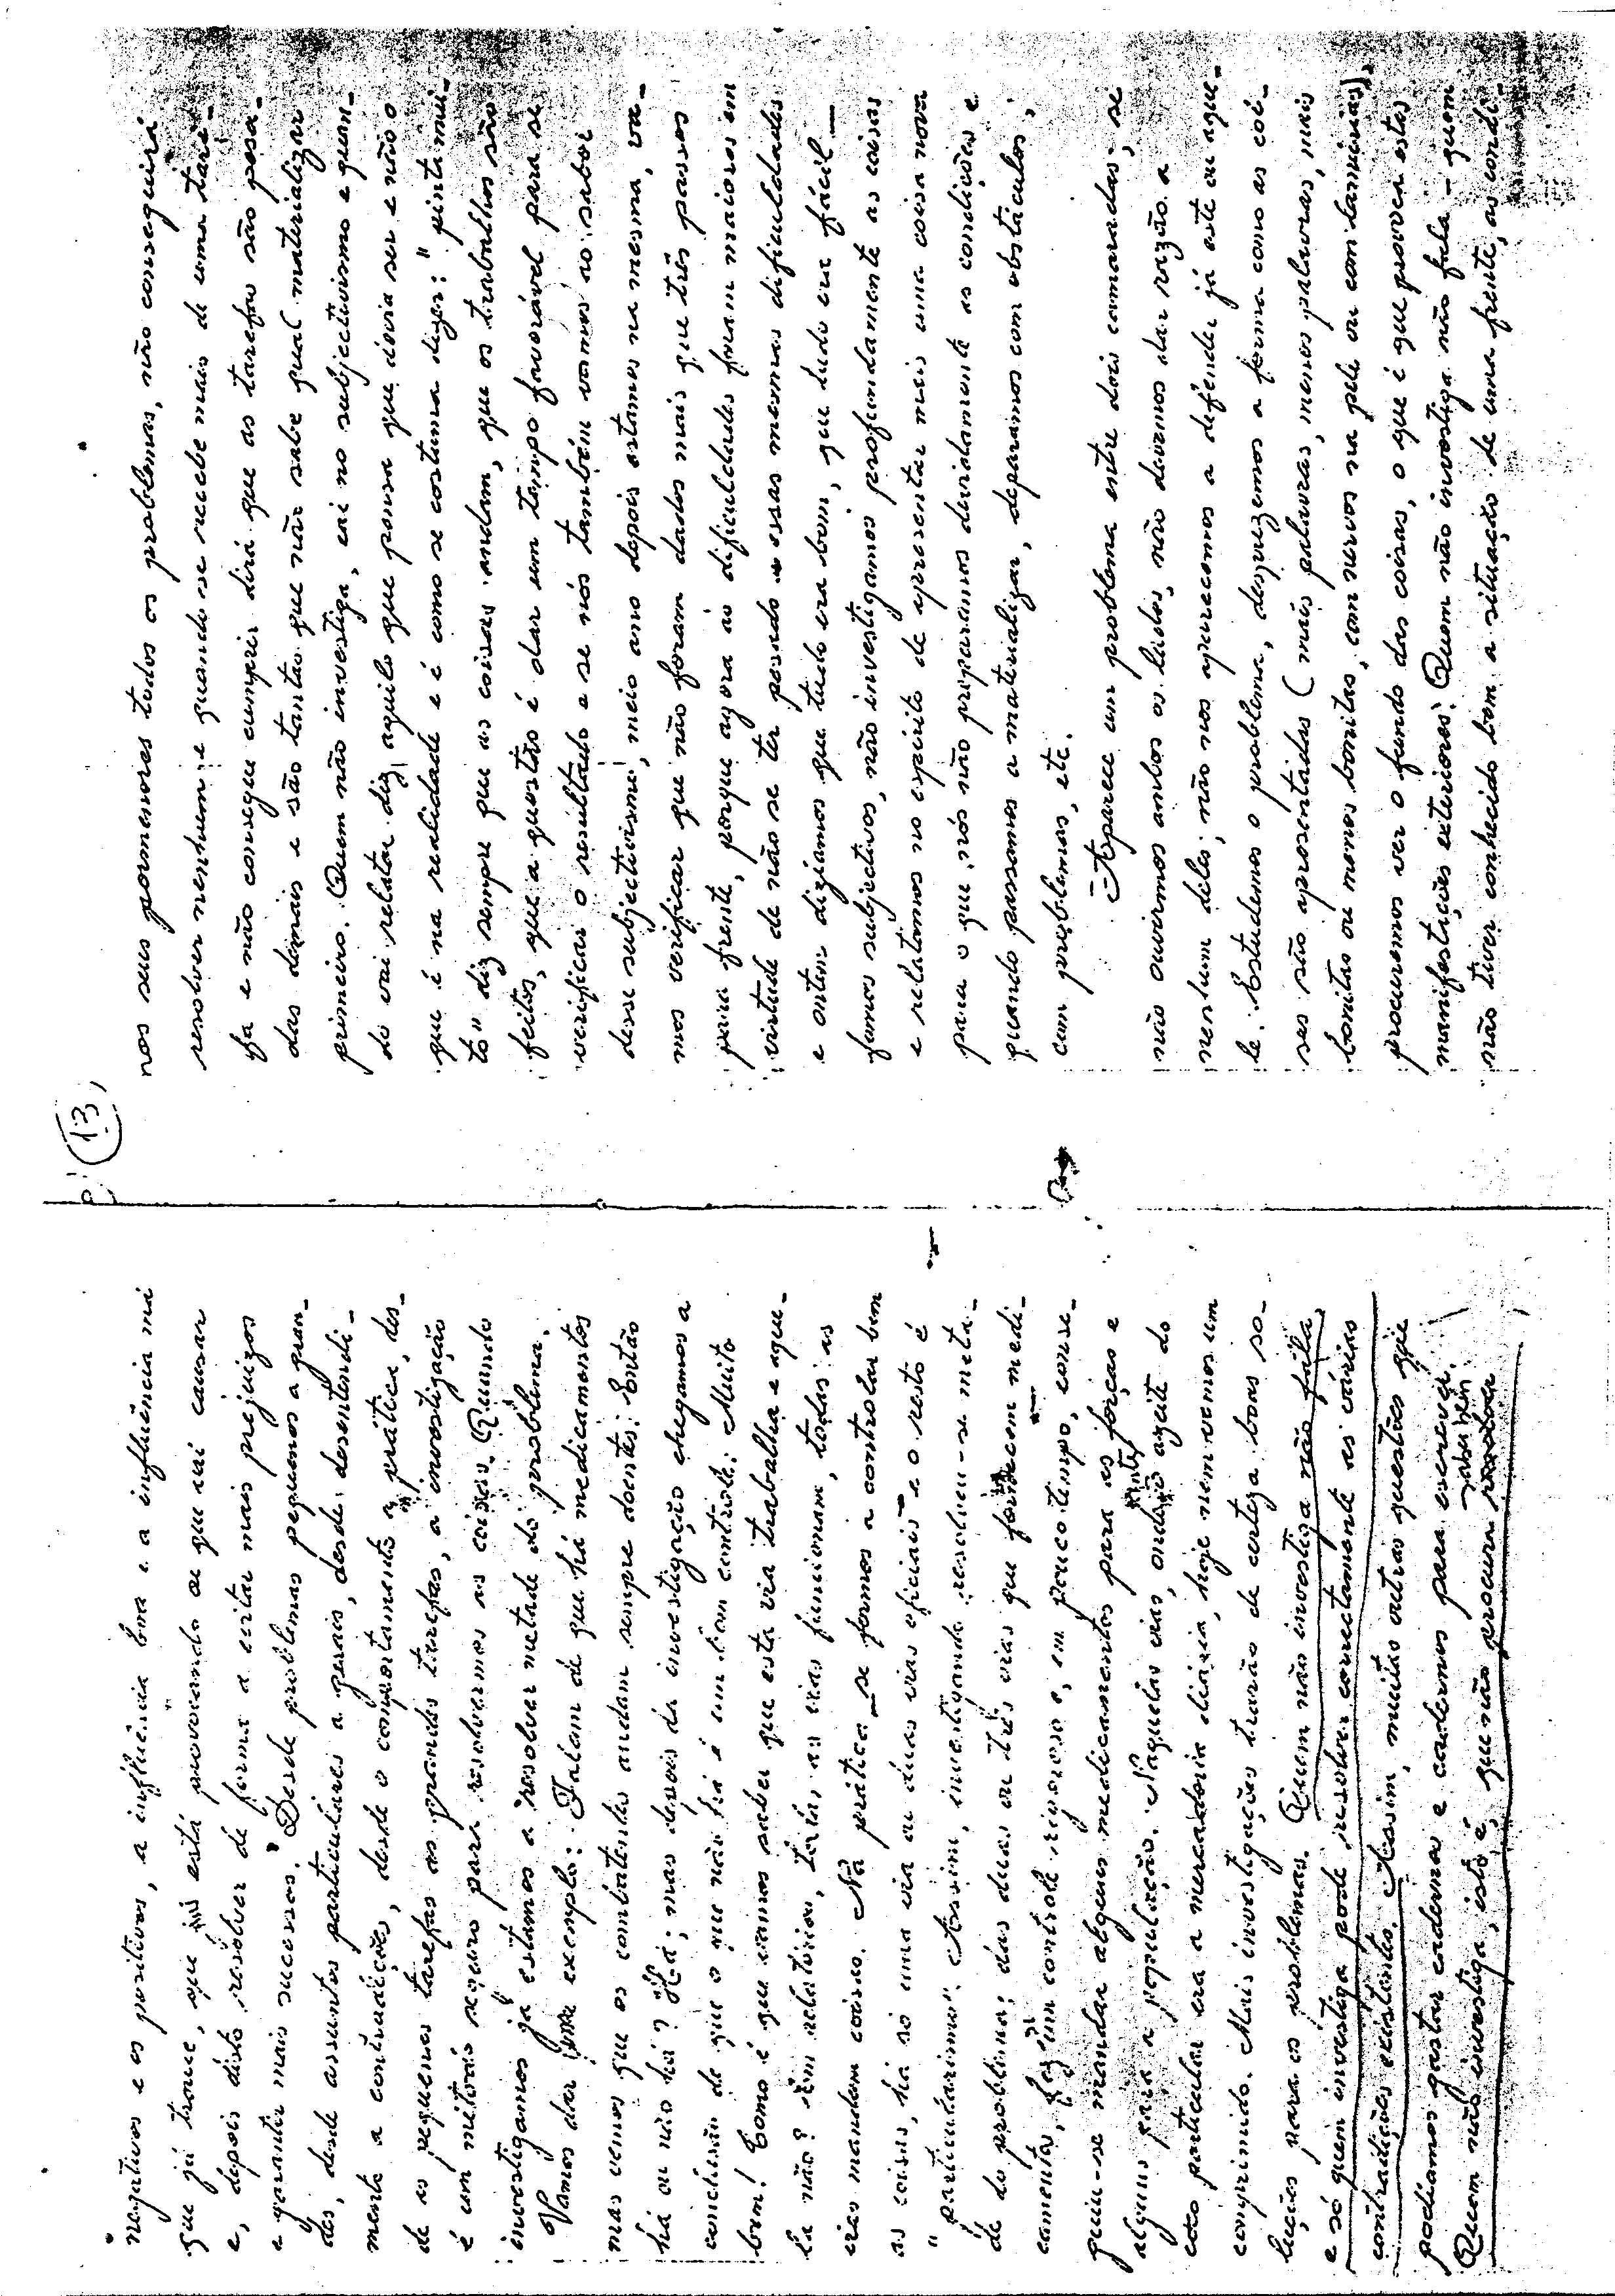 negativos e os positivos, a influência boa e a influência má
que já trouxe, que está provocando ou que vai causar
e, depois disto, resolver de forma a evitar mais prejuizos
e garantir mais sucessos. Desde problemas pequenos a gran-
des, desde assuntos particulares a gerais, desde desentendi-
mento a contradições, desde o comportamento à prática, des-
de as pequenas tarefas às grandes tarefas, a investigação
é um método seguro para resolvermos as coisas. Quando
investigamos já estamos a resolver metade do problema.
Vamos dar um exemplo: Falam de que há medicamentos
mas vemos que os combatentes andam sempre doentes. Então
há ou não há? Há; mas depois da investigação chegamos a
conclusão de que o que não há é um bom controle. Muito
bem! Como é que vamos saber que esta via trabalha e aque-
la não? Vêm relatórios, todas as vias funcionam, todas as
vias mandam coisas. Na prática se formos a controlar bem
as coisas, há só uma via ou duas vias oficiais e o resto é
"particularismo". Assim, investigando resolveu-se meta-
de do problema; das duas ou três vias que fornecem medi-
camentos, faz-se um controle rigoroso e, em pouco tempo, conse-
guiu-se mandar alguns medicamentos para as forças e
alguns para a população. Naquelas vias, onde antes azeite do
cão particular era a mercadoria diária, hoje nem vemos um
comprimido. Mais investigações trarão de certeza boas so-
luções para os problemas. Quem não investiga não fala
e só quem investiga pode resolver correctamente as várias
contradições existentes. Assim, muitas outras questões que
podiamos gastar cadernos e cadernos para escrever.
Quem não investiga, isto é, que não procura saber bem
13
nos seus pormenores todos os problemas, não conseguirá
resolver nenhum e quando se recebe mais de uma tare-
fa e não consegue cumprir dirá que as tarefas são pesa-
das demais e são tantas que não sabe qual materializar
primeiro. Quem não investiga, cai no subjectivismo e quan-
do vai relatar diz aquilo que pensa que devia ser e não o
que é na realidade e é como se costuma dizer: "pinta mui-
to" diz sempre que as coisas andam, que os trabalhos são
feitos, que a questão é dar um tempo favorável para se
verificar o resultado e se nós também vamos ao sabor
desse subjectivismo, meio ano depois estamos na mesma, va-
mos verificar que não foram dados mais que três passos
para frente, porque agora as dificuldades foram maiores em
virtude de não se ter pesado essas mesmas dificuldades
e ontem diziamos que tudo era bom, que tudo era fácil —
fomos subjectivos, não investigamos profundamente as coisas
e relatamos no espirito de apresentar mais uma coisa nova
para o que nós não preparamos devidamente as condições e
quando passamos a materializar, deparamos com obstáculos,
com problemas, etc.
Aparece um problema entre dois camaradas; se
não ouvirmos ambos os lados, não devemos dar razão a
nenhum deles; não nos aparecemos a defender já este ou aque-
le. Estudemos o problema, desprezemos a forma como as coi-
sas são apresentadas (mais palavras, menos palavras, mais
bonitas ou menos bonitas, com nervos na pele ou com lamúrias),
procuremos ver o fundo das coisas, o que é que provoca estas
manifestações exteriores. Quem não investiga não fala - quem
não tiver conhecido bem a situação de uma frente, as condi-